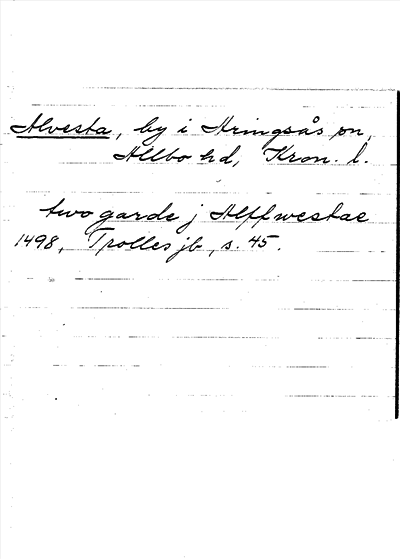 Alvesta, by i Aringsås sn,
Allbo hd, Kron. l.
two garde j Alffwestae
1498, Trolles jb, s. 45.